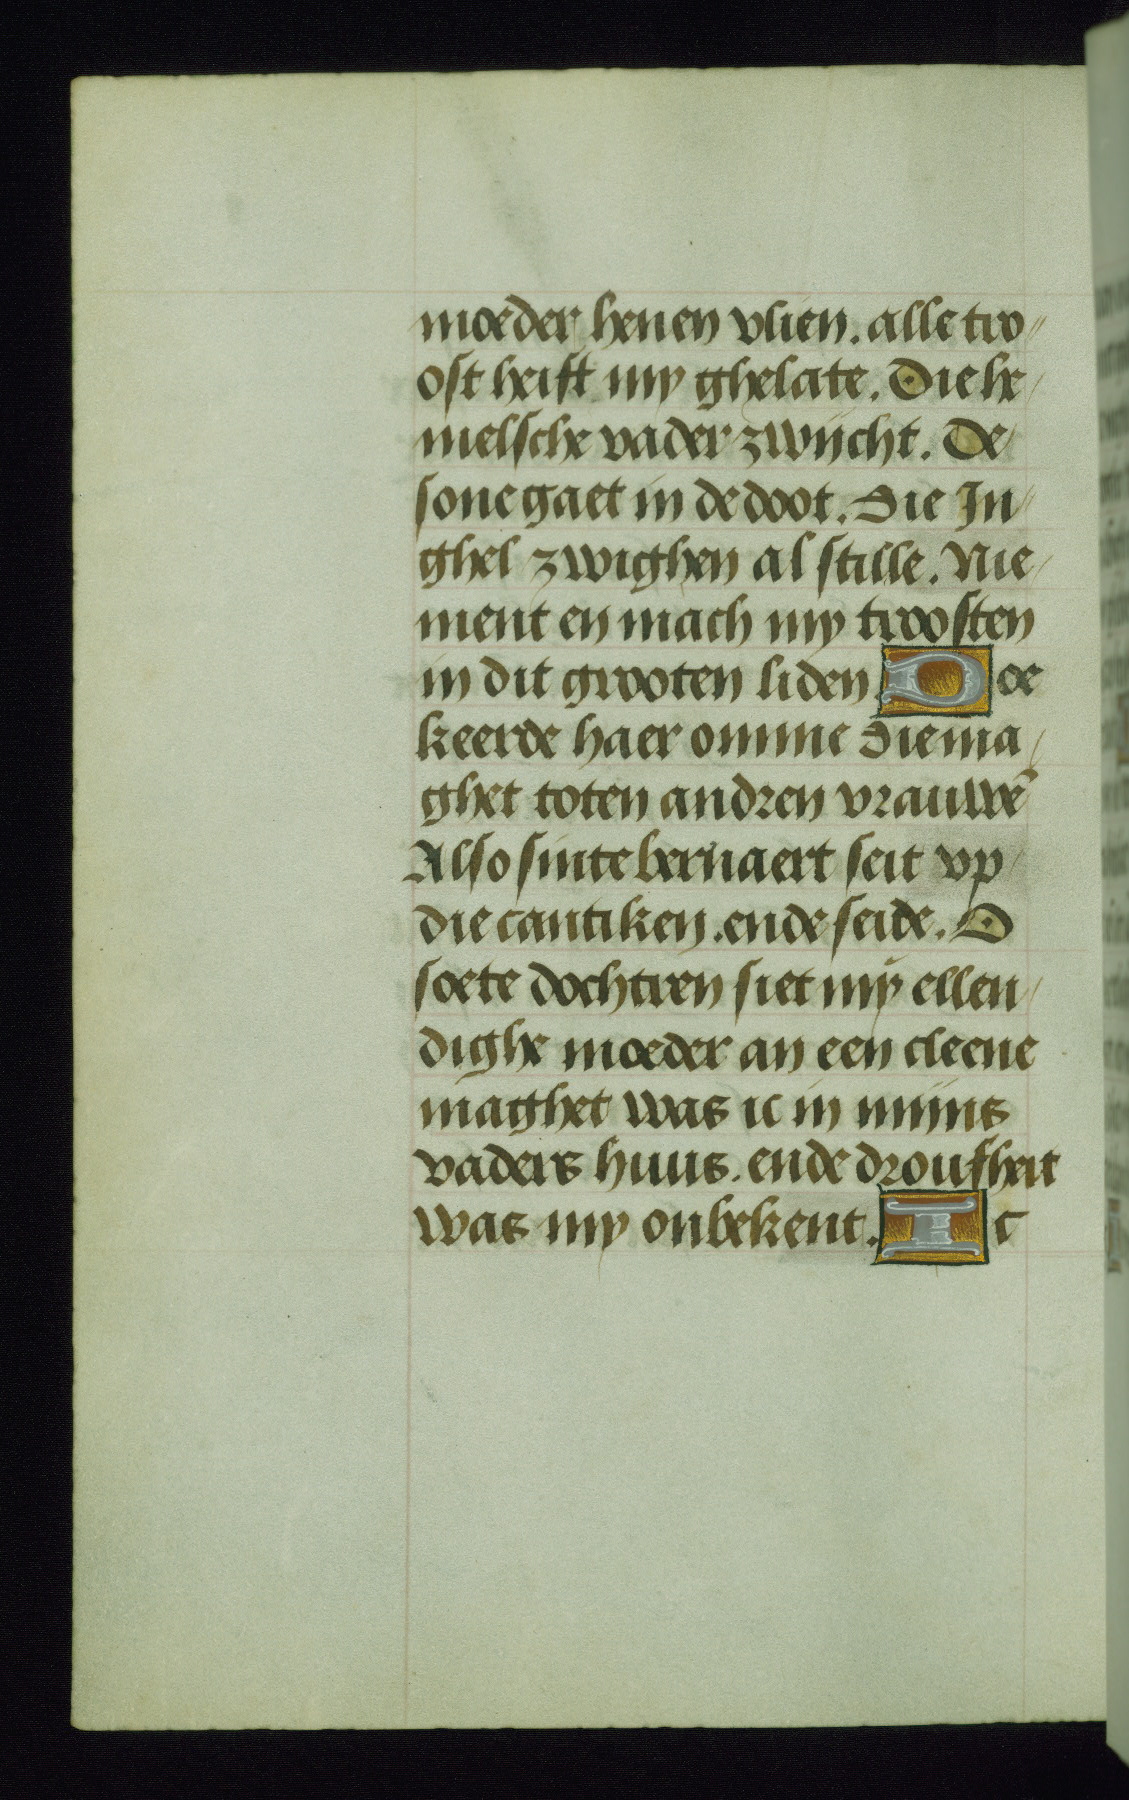 moeder henen vlien. alle tro//
ost heift my ghelate. Die he/
melsche vader zwijcht. De/
sone gaet in de doot. Die In//
ghel zwighen al stille. Nie/
ment en mach my troosten
in dit grooten liden. Doe
keerde haer omme die ma/
ghet toten andren vrauwē
Also sinte bernaert seit vp/
die cantiken. ende seide. O
soete dochtren siet mÿ ellen/
dighe moeder an een cleene
maghet was ic in mijns
vaders huus. ende droufheit
was my onbekent. Ic